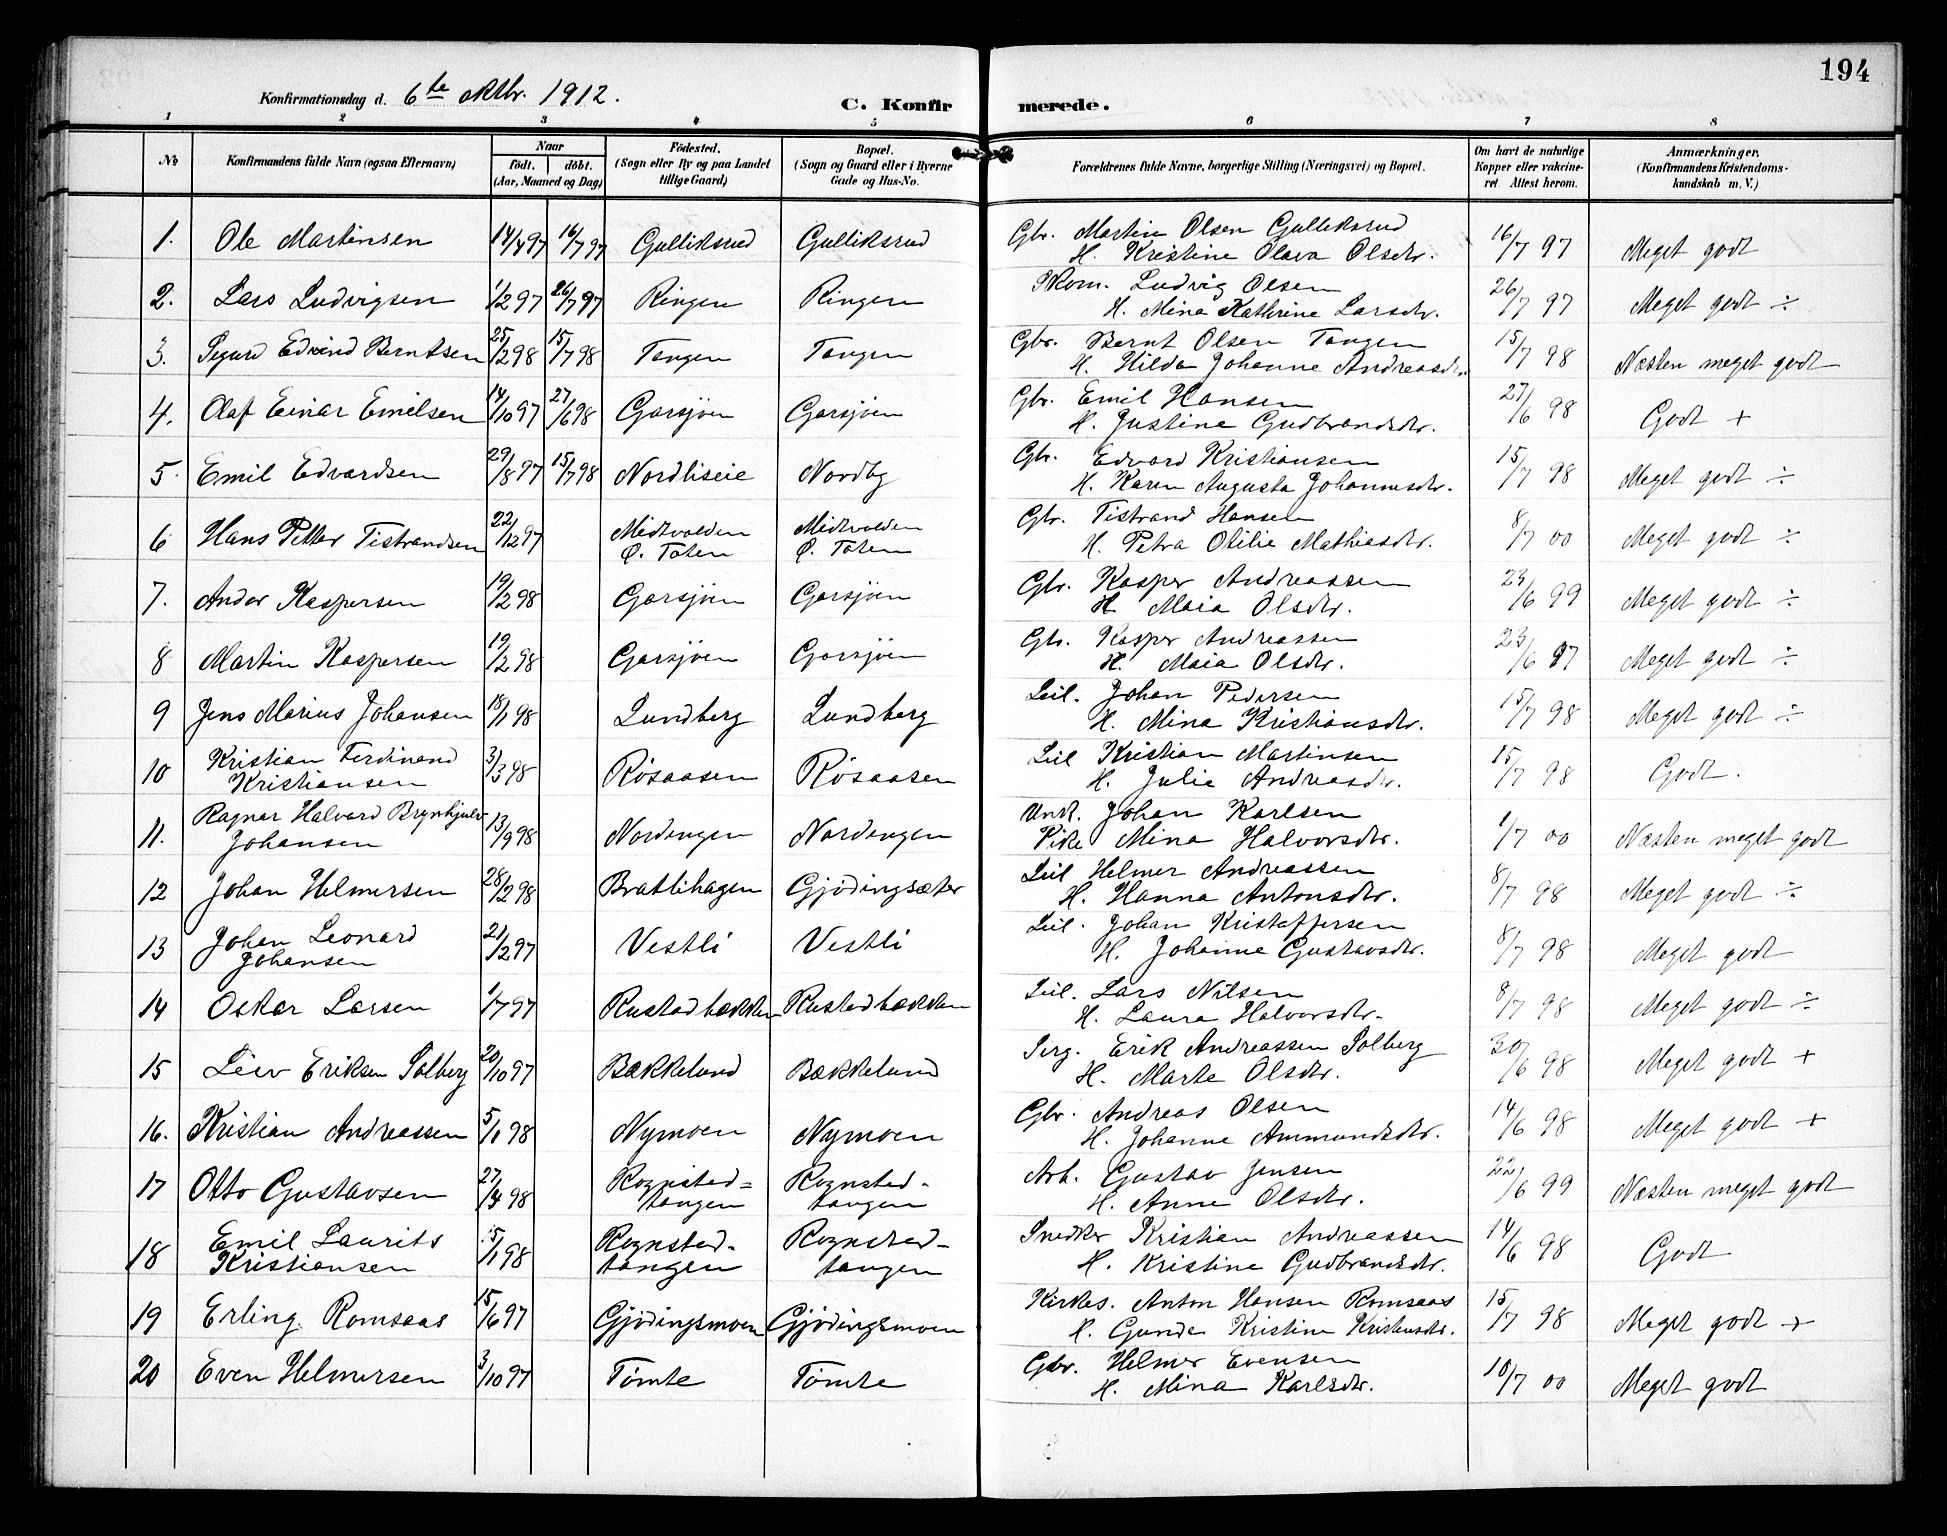 194
Konfirmationsdag d. 6te oktbr. 1912.
C. Konfirmerede.
1 2 3 4 5 6 7 8
No
Konfirmandens fulde Navn (ogsaa Efternavn)
Naar
født. døbt.
(Aar, Maaned og Dag)
Fødested.
(Sogn eller By og paa Landet
tillige Gaard)
Bopæl.
(Sogn og Gaard eller i Byerne
Gade og Hus-No.
Forældrenes fulde Navne, borgerlige Stilling (Næringsvei) og Bopæl.
Om havt de naturlige
Kopper eller vakcine-
ret. Attest herom.
Anmærkninger,
(Konfirmandens Kristendoms-
kundskab m. V.)
1. Ole Martinsen 14/4 97 16/7 97 Gulliksrud Gulliksrud Gbr. Martin Olsen Gulliksrud 16/7 97 Meget godt
H. Kristine Olava Olsdtr.
2. Lars Ludvigsen 1/2 97 26/7 97 Ringen Ringen Skom. Ludvig Olsen 26/7 97 Meget godt ÷
H. Mina Kathrine Larsdtr.
3. Sigurd Edvind Berntsen 25/2 98 15/7 98 Tangen Tangen Gbr. Bernt Olsen Tangen 15/7 98 Næsten meget godt
H. Hilda Johanne Andreasdtr.
4. Olaf Einar Emilsen 14/10 97 27/6 98 Garsjøen Garsjøen Gbr. Emil Hansen 27/6 98 Godt +
H. Justine Gudbrandsdtr.
5. Emil Edvardsen 29/8 97 15/7 98 Nordliseie Nordby Gbr. Edvard Kristiansen 15/7 98 Meget godt ÷
H. Karen Augusta Johannesdtr.
6 Hans Petter Tistrandsen 22/12 97 Midtvolden Midtvolden Gbr. Tistrand Hansen 8/7 00 Meget godt ÷
Ø. Toten Ø. Toten H. Petra Otilie Mathiasdtr.
7. Andor Kaspersen 19/2 98 Garsjøen Garsjøen Gbr. Kasper Andreassen 23/6 99 Meget godt ÷
H. Maia Olsdtr.
8 Martin Kaspersen 19/2 98 Garsjøen Garsjøen Gbr. Kasper Andreassen 23/6 97 Meget godt ÷
H. Maia Olsdtr.
9 Jens Marius Johansen 18/1 98 Lundberg Lundberg Leil. Johan Pedersen 15/7 98 Meget godt ÷
H. Mina Kristiansdtr.
10 Kristian Ferdinand 3/3 98 Røsaasen Røsaasen Leil Kristian Martinsen 15/7 98 Godt.
Kristiansen H. Julie Andreasdtr.
11. Ragnar Halvard Brynhjulv 13/9 98 Nordengen Nordengen Unk. Johan Karlsen 1/7 00 Næsten meget godt
Johansen Pike Mina Halvorsdtr.
12 Johan Helmersen 28/2 98 Bratlihagen Gjødingsæter Leil Helmer Andreassen 8/7 98 Meget godt ÷
H. Hanna Antonsdtr.
13 Johan Leonard 21/2 97 Vestli Vestli Leil. Johan Kristoffersen 8/7 98 Meget godt
Johansen H. Johanne Gustavsdtr.
14 Oskar Larsen 1/7 97 Rustadbækken Rustadbækken Leil. Lars Nilsen 8/7 98 Meget godt ÷
H. Laura Halvorsdtr.
15 Leiv Eriksen Solberg 20/10 97 Bækkelund Bækkelund Serg. Erik Andreassen Solberg 30/6 98 Meget godt +
H. Marte Olsdtr.
16. Kristian Andreassen 5/1 98 Nymoen Nymoen Gbr. Andreas Olsen 14/6 98 Meget godt +
H. Johanne Ammundsdtr.
17 Otto Gustavsen 27/4 98 Rognstad= Rognstad- Arb. Gustav Jensen 22/6 99 Næsten meget godt
tangen tangen H. Anne Olsdtr.
18 Emil Laurits 15/1 98 Rognstad- Rognstad- Snedker Kristian Andreassen 14/6 98 Godt
Kristiansen tangen tangen H. Kristine Gudbrandsdtr.
19 Erling Romsaas 15/6 97 Gjødingsmoen Gjødingsmoen Kirkes. Anton Hansen Romsaas 15/7 98 Meget godt +
H. Gunda Kristine Kristiansdtr.
20 Even Helmersen 3/10 97 Tømte Tømte Gbr. Helmer Evensen 10/7 00 Meget godt
H. Mina Karlsdtr.